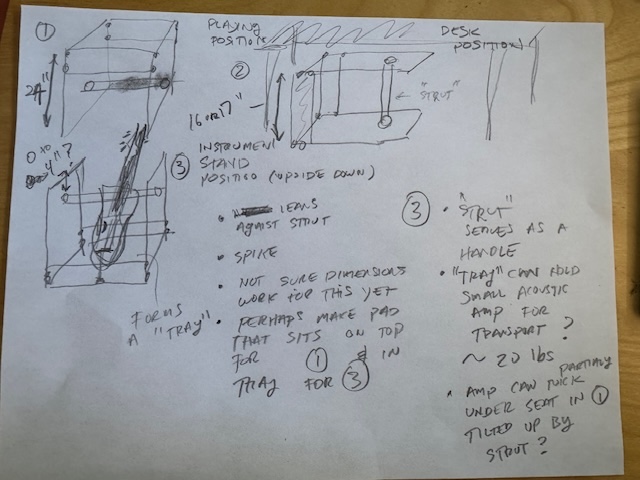 ①
PLAYING
POSITION
24"
②
DESK
POSITION
16 OR 17"
"STRUT"
0 TO
4"?
③
INSTRUMENT
STAND
POSITION (UPSIDE DOWN)
• LEANS
AGAINST STRUT
• SPIKE
• NOT SURE DIMENSIONS
WORK FOR THIS YET
• PERHAPS MAKE PAD
THAT SITS ON TOP
FOR ① & IN
TRAY FOR ③
FORMS
A "TRAY"
③ • "STRUT"
SERVES AS A
HANDLE
• "TRAY" CAN HOLD
SMALL ACOUSTIC
AMP FOR
TRANSPORT?
~ 20 lbs
• AMP CAN TUCK PARTIALLY
UNDER SEAT IN ①
TILTED UP BY
STRUT?